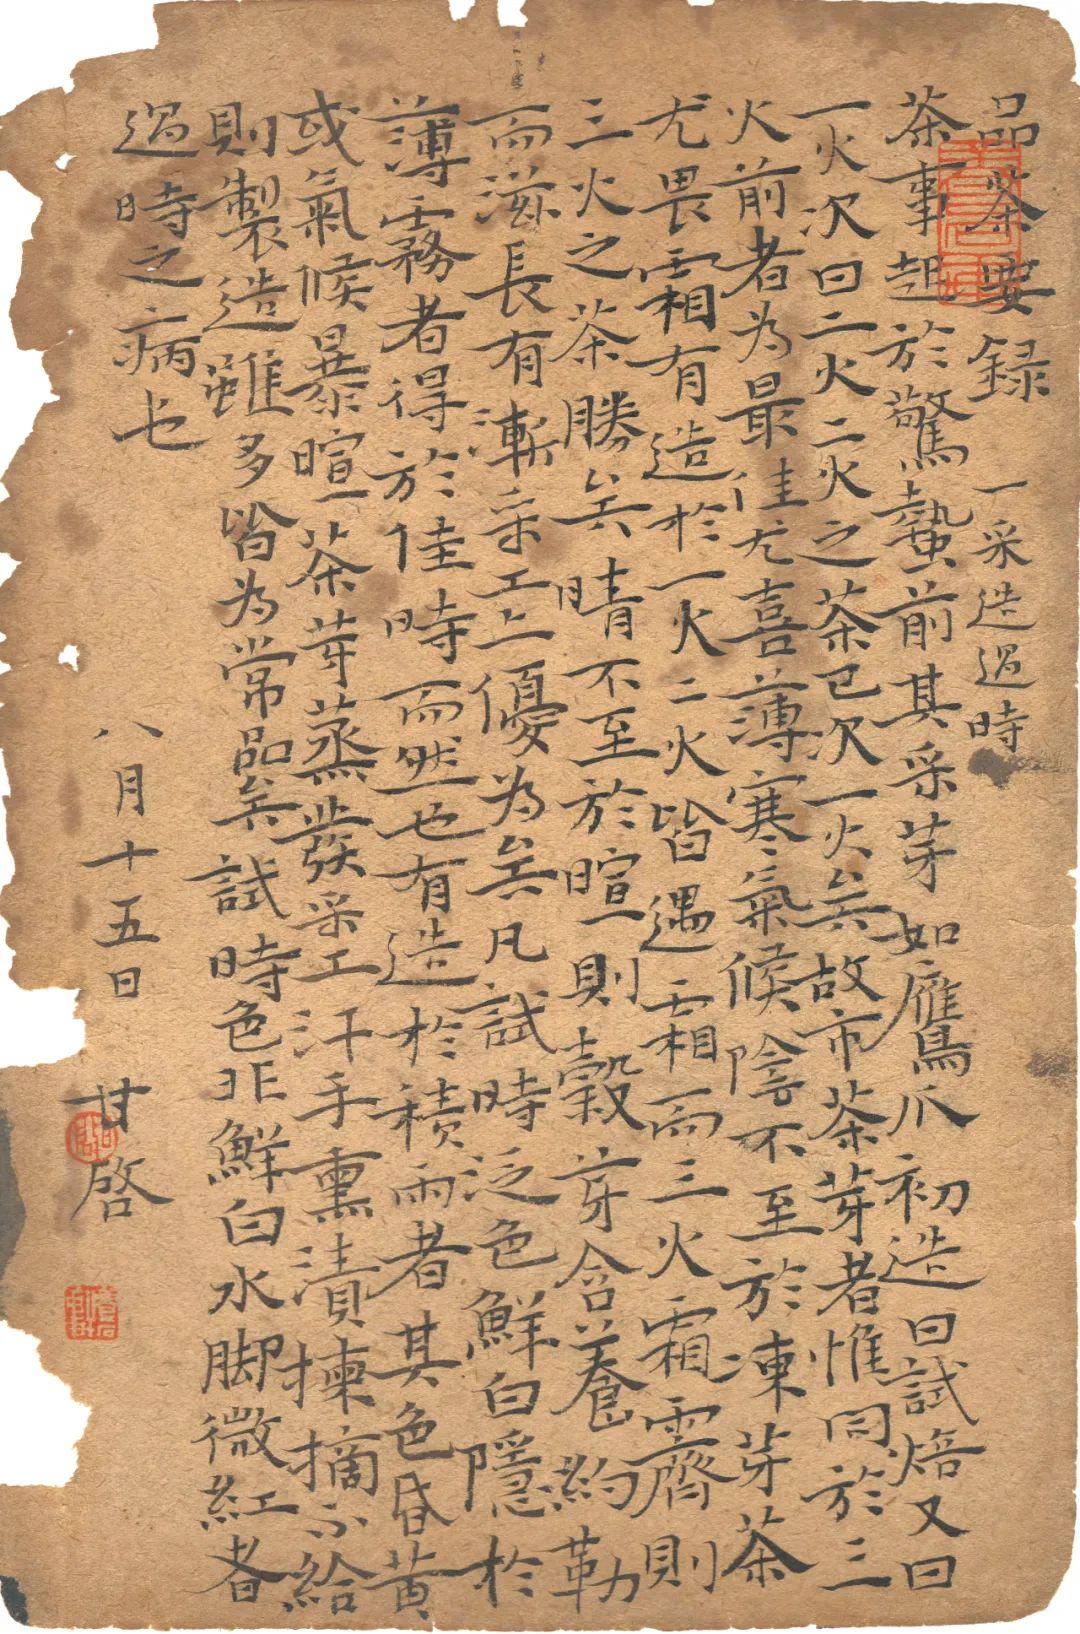 品茶要録 一采造過時
茶事起於驚蟄前其采芽如鷹爪初造曰試焙又曰
一火次曰二火二火之茶已次一火矣故市茶芽者惟同於三
火前者為最佳尤喜薄寒氣候陰不至於凍芽茶
尤畏霜有造於一火二火皆遇霜而三火霜霽則
三火之茶勝矣晴不至於暄則穀芽含養約勒
而滋長有漸采工上優為矣凡試時泛色鮮白隱於
薄霧者得於佳時而然也有造於積雨者其色昏黄
或氣候暴暄茶芽蒸發采工汗手熏漬揀摘不給
則製造雖多皆為常品矣試時色非鮮白水脚微紅者
過時之病也
八月十五日 甘啓